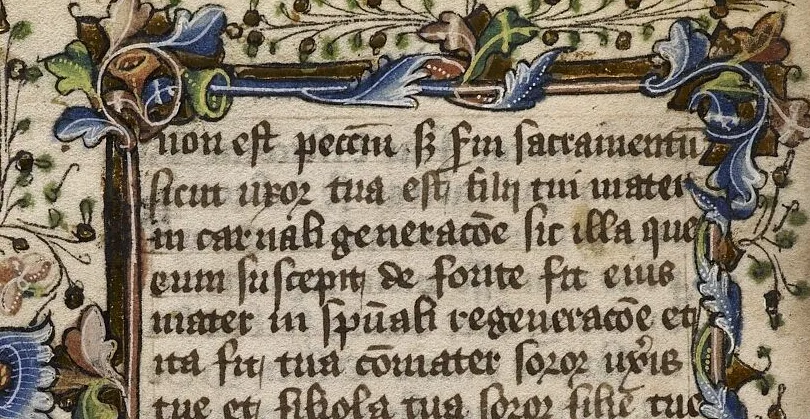 non est peccm̄ sꝫ scd̄m sacramentū
sicut uxor tua est filij tui mater
in carnali generacōe sic illa que
eum suscepit de fonte fit eius
mater in spūali regeneracōe et
ita fit tua cōmater soror uxˀis
tue et filiola tua soror filie tue